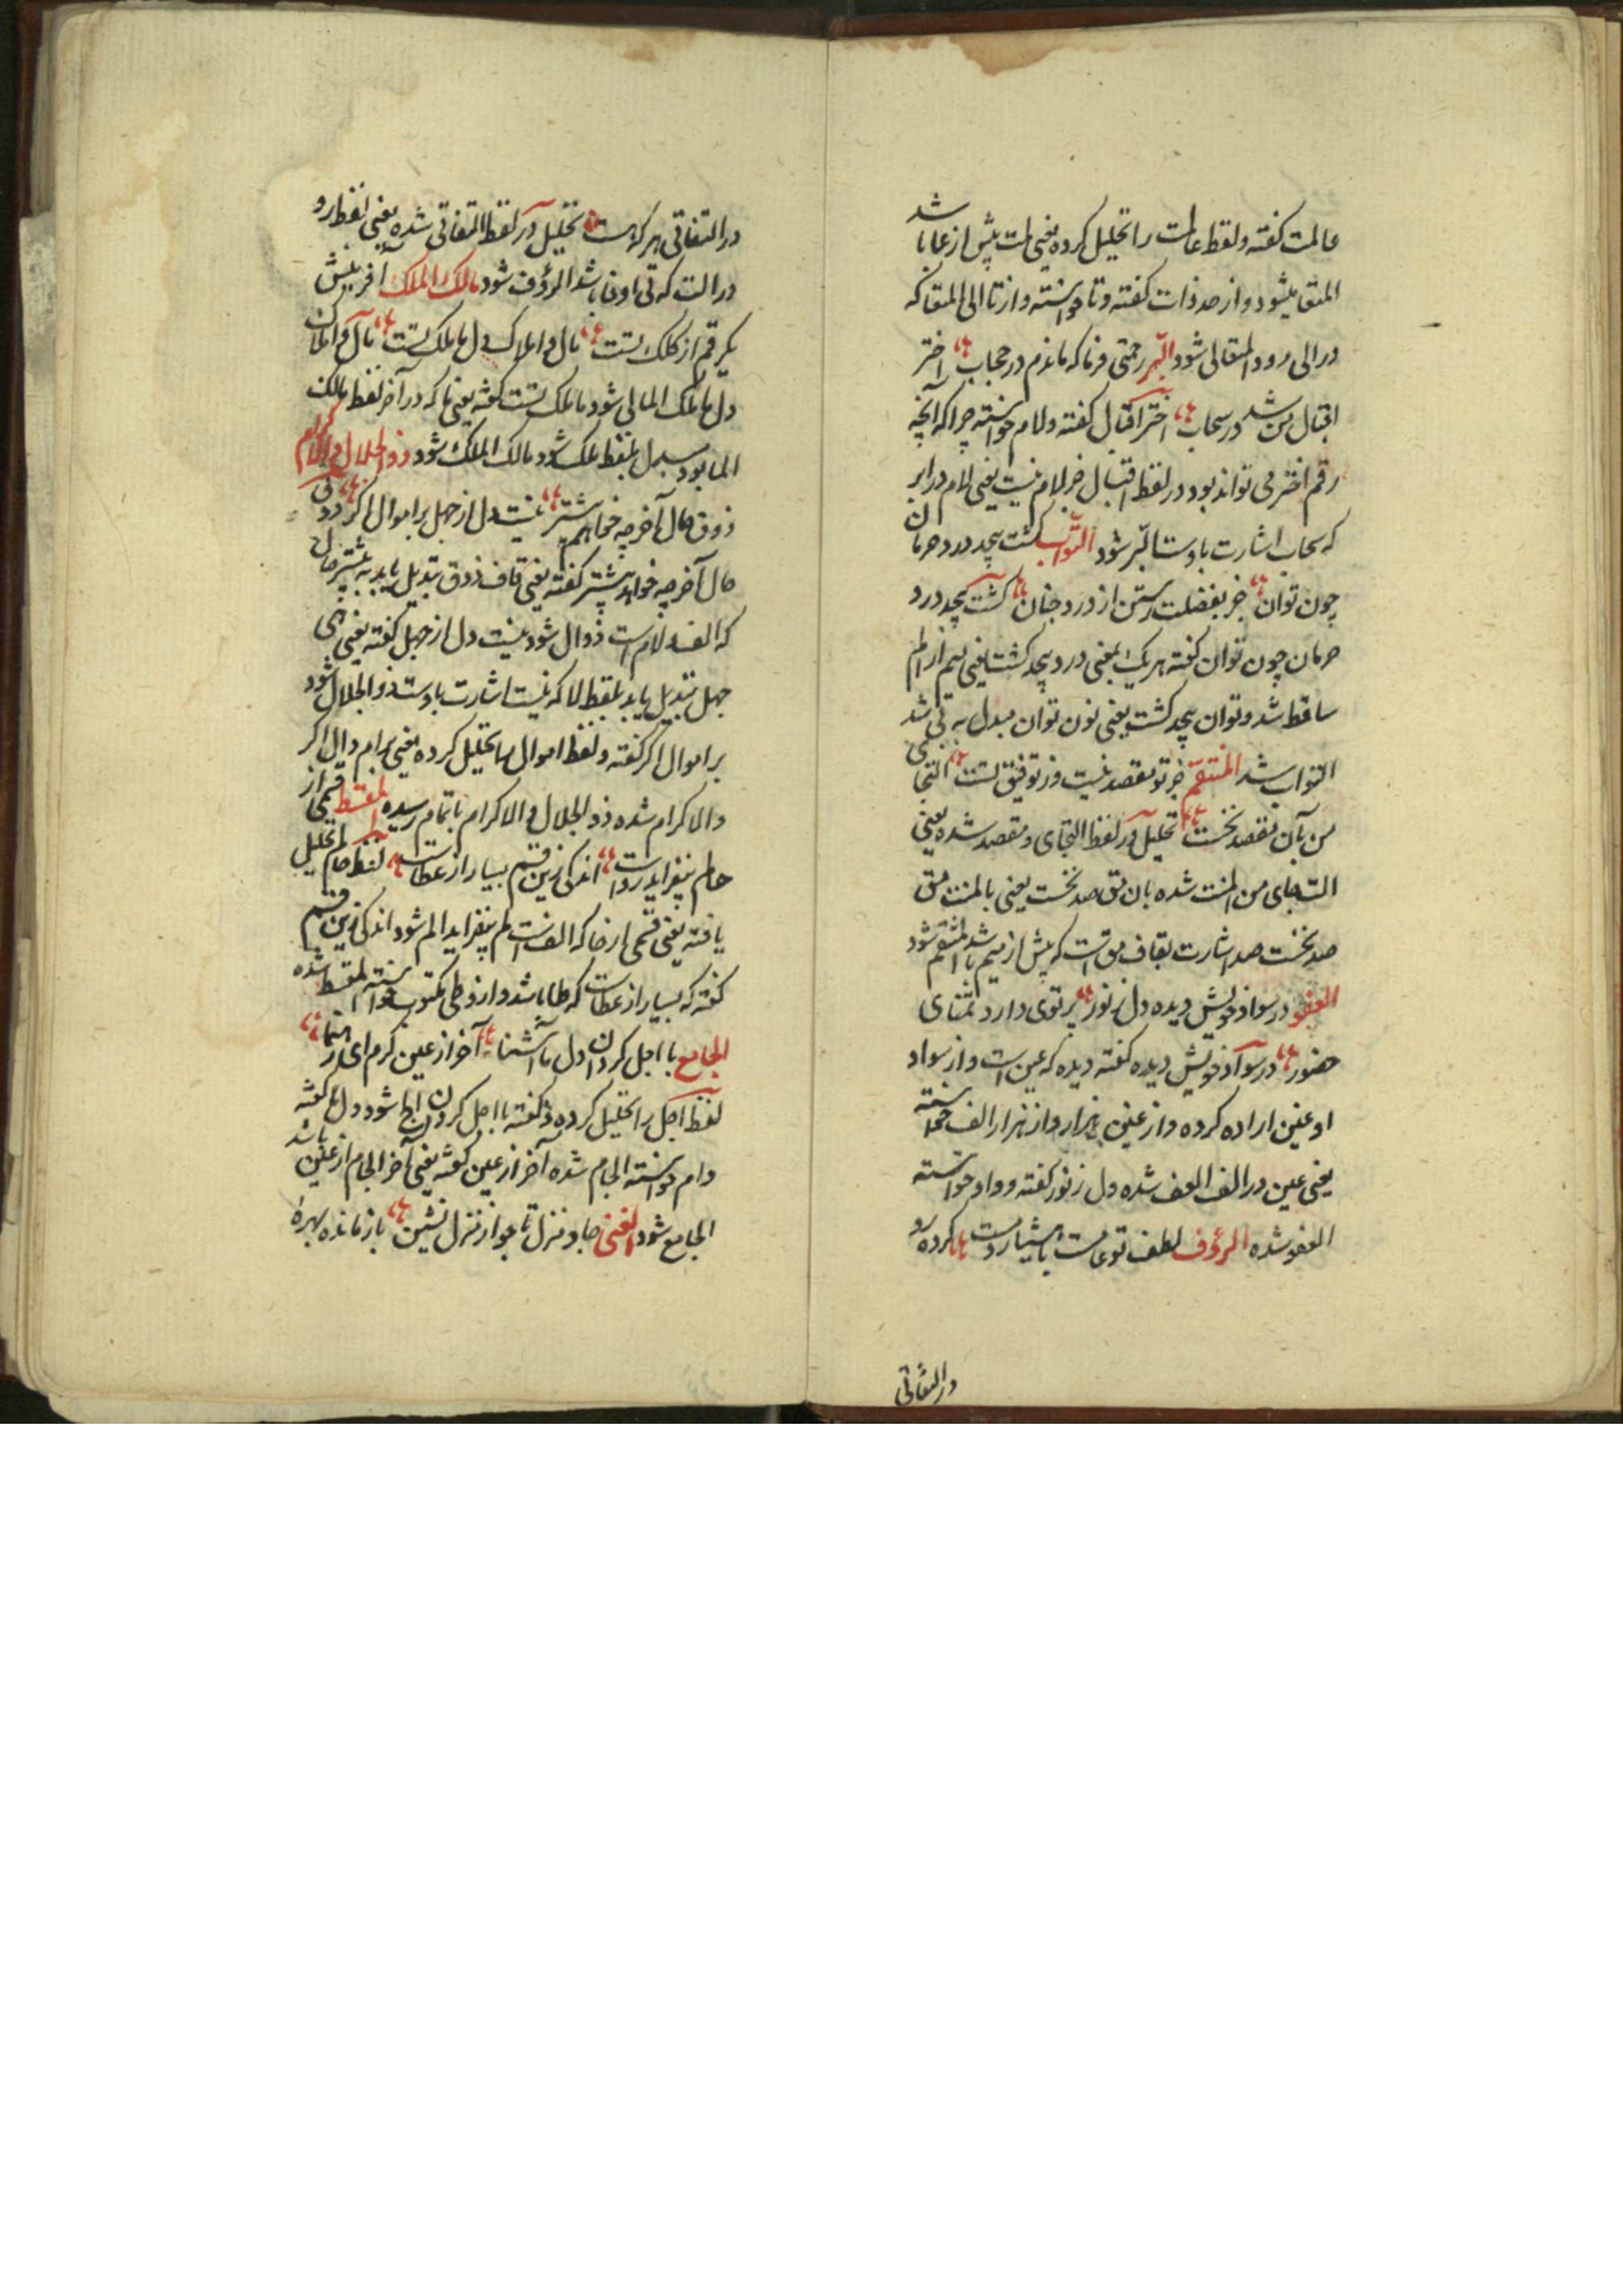 عالمت کفته ولفظ عالمت را تحلیل کرده یعنی لمت پیش از عا باشد
المتعا میشود و از صد ذات کفته و تا خواسته و از تا الی المتعا که
در الی رود المتعالی شود البر رحمتی فرما که ماندم در حجاب اختر
اقبال من شد در سحاب اختر اقبال کفته ولام خواسته چرا که آنچه
رقم اختر می تواند بود در لفظ اقبال جز لام نیست یعنی لام در ابر
که سحاب اشارت باوست البر شود التواب کشت بیحد درد حرمان
چون توان جز بفضلت رستن از درد چنان کشت بیحد درد
حرمان چون توان کفته هر یک بمعنی درد بیحد کشت یعنی میم از الم
ساقط شد و توان بیحد کشت یعنی نون توان مبدل به بی شد
التواب شد المنتقم جز تو مقصد نیست وز توفیق تست التجای
من بآن مقصد نخست تحلیل در لفظ التجای و مقصد شده یعنی
الت جای من المنت شده بان مق صد نخست یعنی با المنت مق
صد نخست صد اشارت بقاف مق است که پیش از میم باشد المنتقم شود
العفو در سواد خویش دیده دل ز نور پرتوی دارد تمنای
حضور در سواد خویش دیده کفته دیده که عین است و از سواد
او غین اراده کرده و از غین هزار و از هزار الف خواسته
یعنی عین در الف العف شده دل ز نور کفته و واو خواسته
العفو شده الرؤف لطف تو عامست با هشیار و مست کرده رو
در التفاتی
در التفاتی هر که هست تحلیل در لفظ التفاتی شده یعنی لفظ رو
در الت که فی اوفا باشد الرؤف شود مالک الملک آفرینش
یک رقم از کلک تست مال و املاک دل ما ملک تست مال و املاک
دل ما ملک المالی شود ما ملک تست کفته یعنی ما که در آخر لفظ مالک
الما بود مبدل بلفظ ملک شود مالک الملک شود ذو الجلال والاکرام
ذوق مال آخر چه خواهم بیشتر نیست دل از جهل بر اموال اکر ذوق
مال آخر چه خواهد بیشتر کفته یعنی قاف ذوق تبدیل یابد به بیشتر مال
که الف و لام است ذوال شود نیست دل از جهل کفته یعنی هی
جهل تبدیل یابد بلفظ لا که نیست اشارت باوست ذو الجلال شود
بر اموال اکر کفته ولفظ اموال را تحلیل کرده یعنی برام وال اکر
والاکرام شده ذو الجلال والاکرام باتمام رسیده المقسط قسمی از
حالم بیفزاید رواست اندکی زین قسم بسیار از عطاست لفظ حالم تحلیل
یافته یعنی قسمی از حا که الف است لم بیفزاید الم شود اندکی زین قسم
کفته که بسیار از عطاست که طا باشد و از و طی مکتوب خواسته المقسط شده
الجامع با اجل کردان دل ما آشنا آخر از عین کرم ای رهنما
لفظ اجل را تحلیل کرده و کفته با اجل کردان الجا شود دل ما کفته
و ام خواسته الجام شده آخر از عین کفته یعنی آخر الجام از عین باشد
الجامع شود الغنی جا و منزل تا بجو از منزل نشین باز مانده بهره